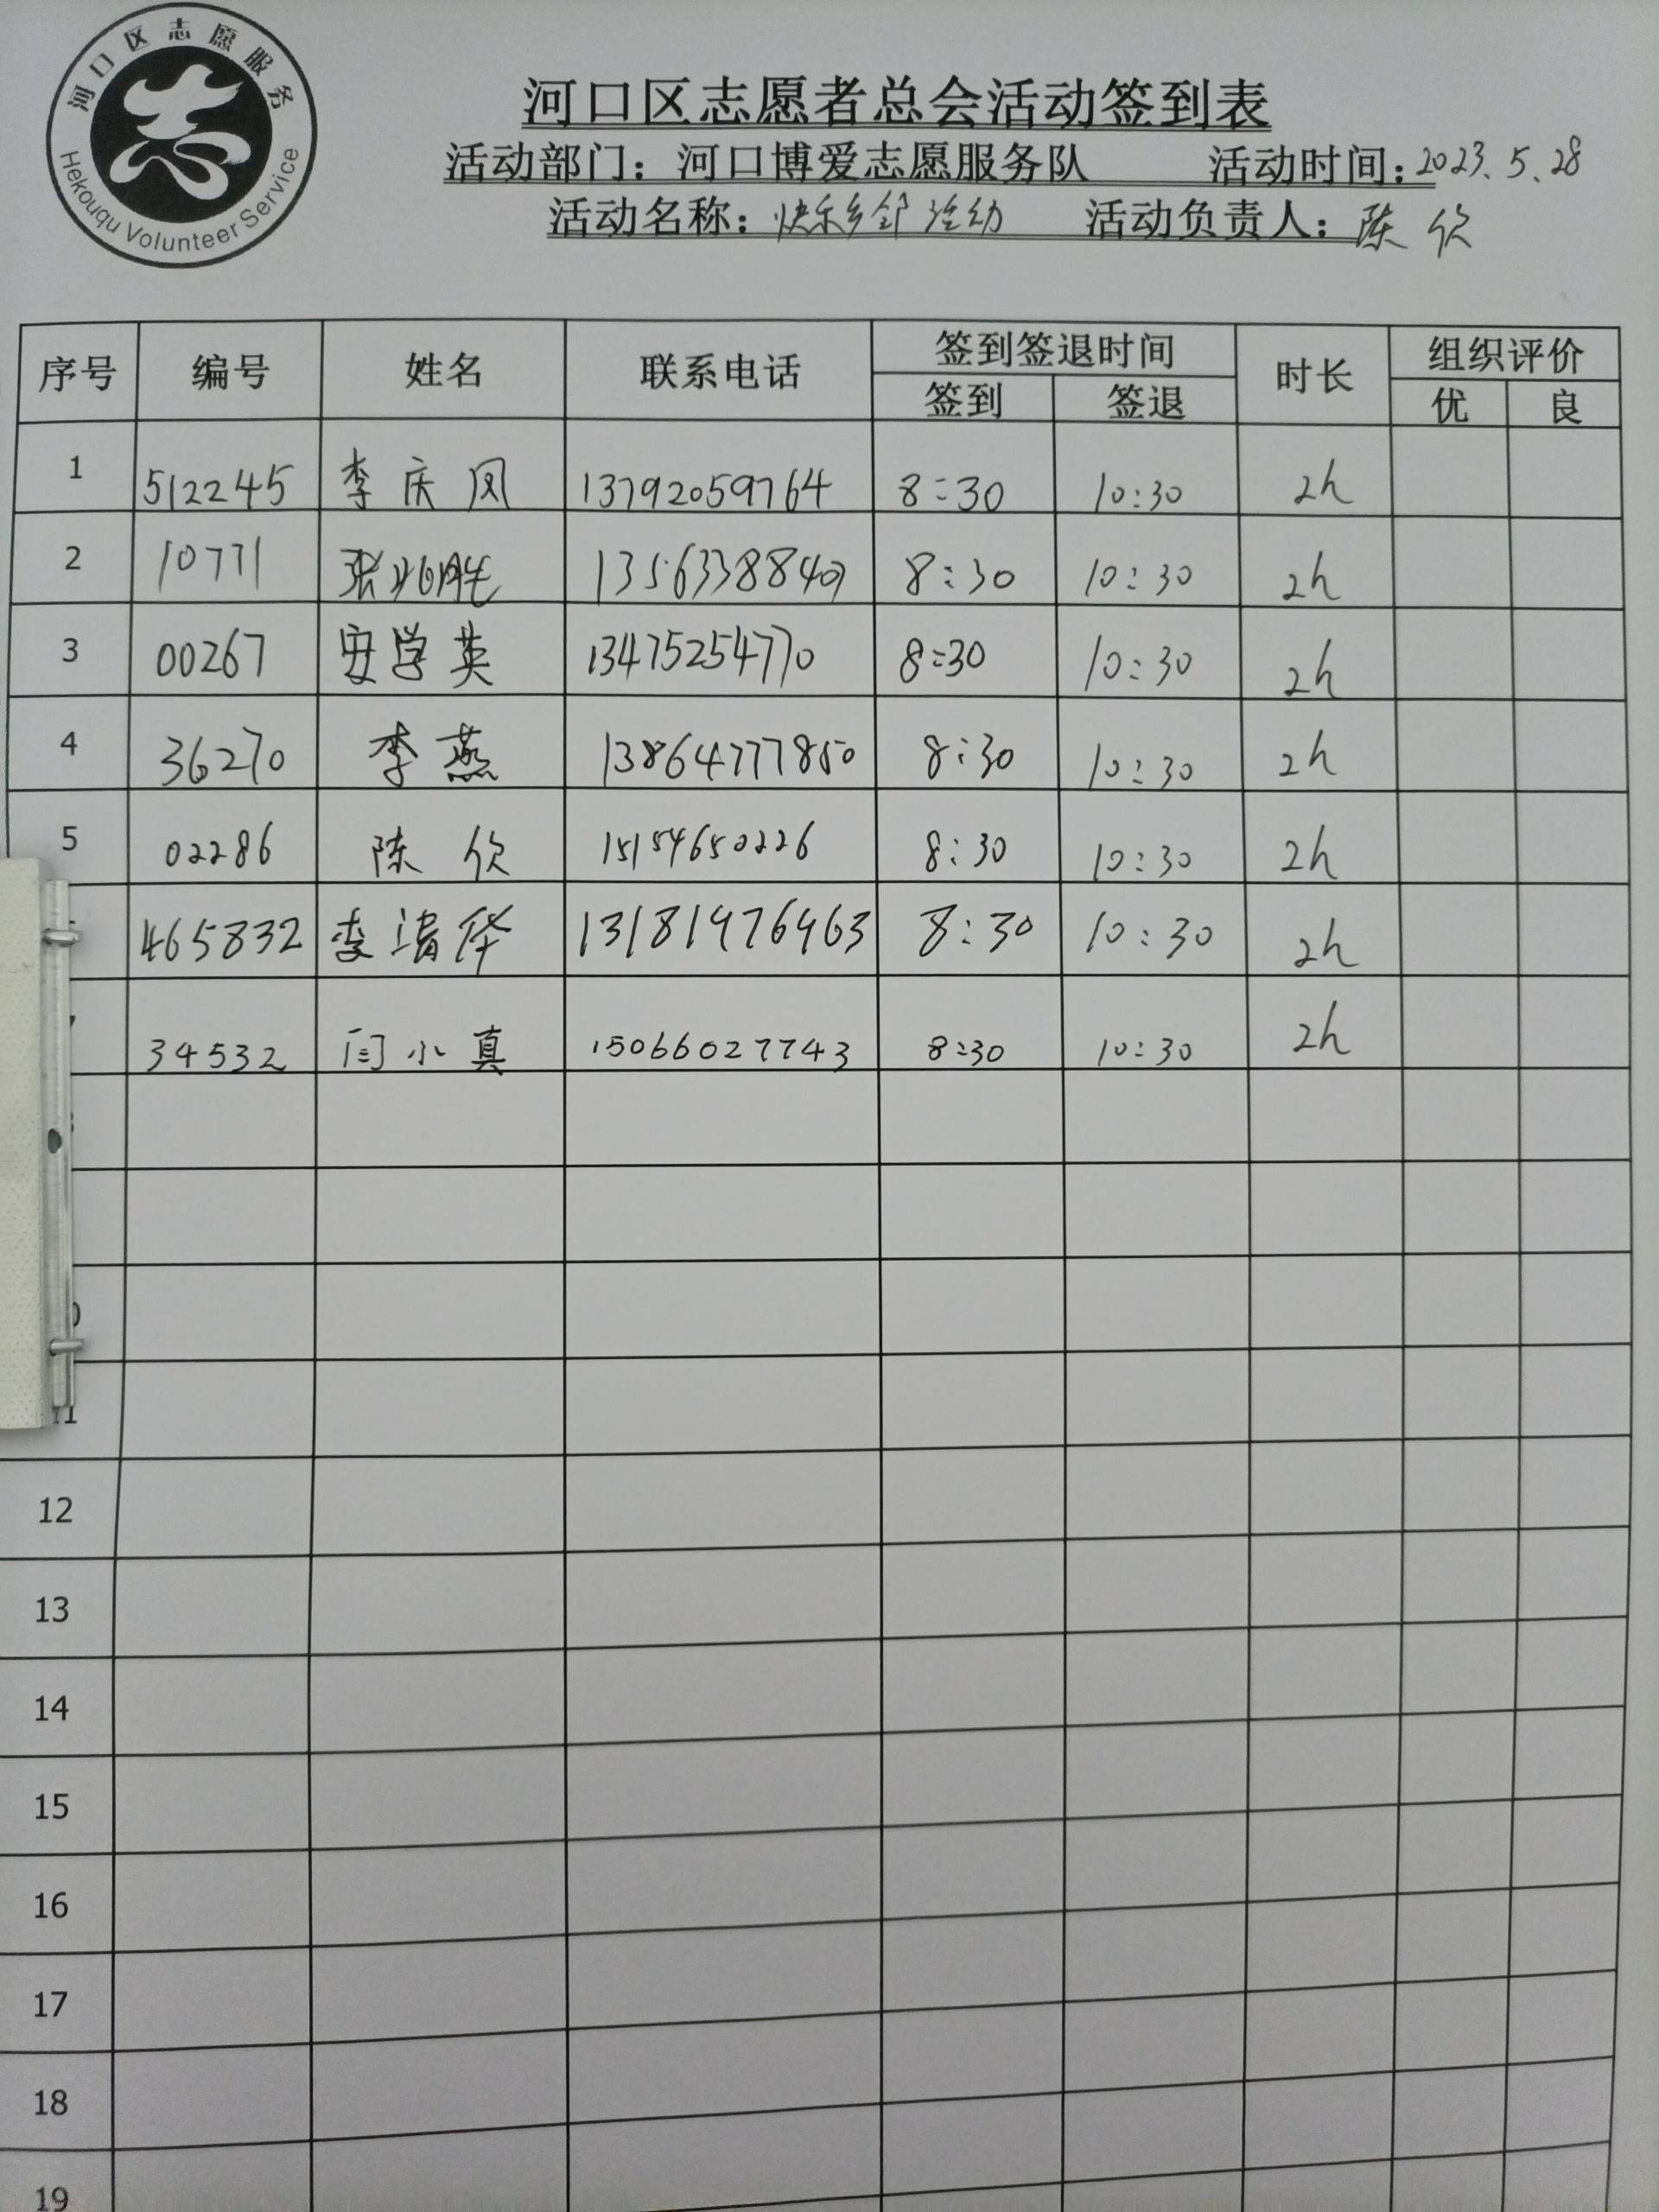 河口区志愿服务
Hekouqu Volunteer Service
河口区志愿者总会活动签到表
活动部门：河口博爱志愿服务队 活动时间：2023.5.28
活动名称：快乐乡邻活动 活动负责人：陈欣
序号 编号 姓名 联系电话 签到签退时间 时长 组织评价
签到 签退 优 良
1 512245 李庆凤 13792059764 8:30 10:30 2h
2 10771 张兆胜 8:30 10:30 2h
3 00267 安学英 13475254770 8:30 10:30 2h
4 36270 李燕 13864777850 8:30 10:30 2h
5 02286 陈欣 15154650226 8:30 10:30 2h
465832 李清华 13181976963 8:30 10:30 2h
34532 闫小真 15066027743 8:30 10:30 2h
11
12
13
14
15
16
17
18
19